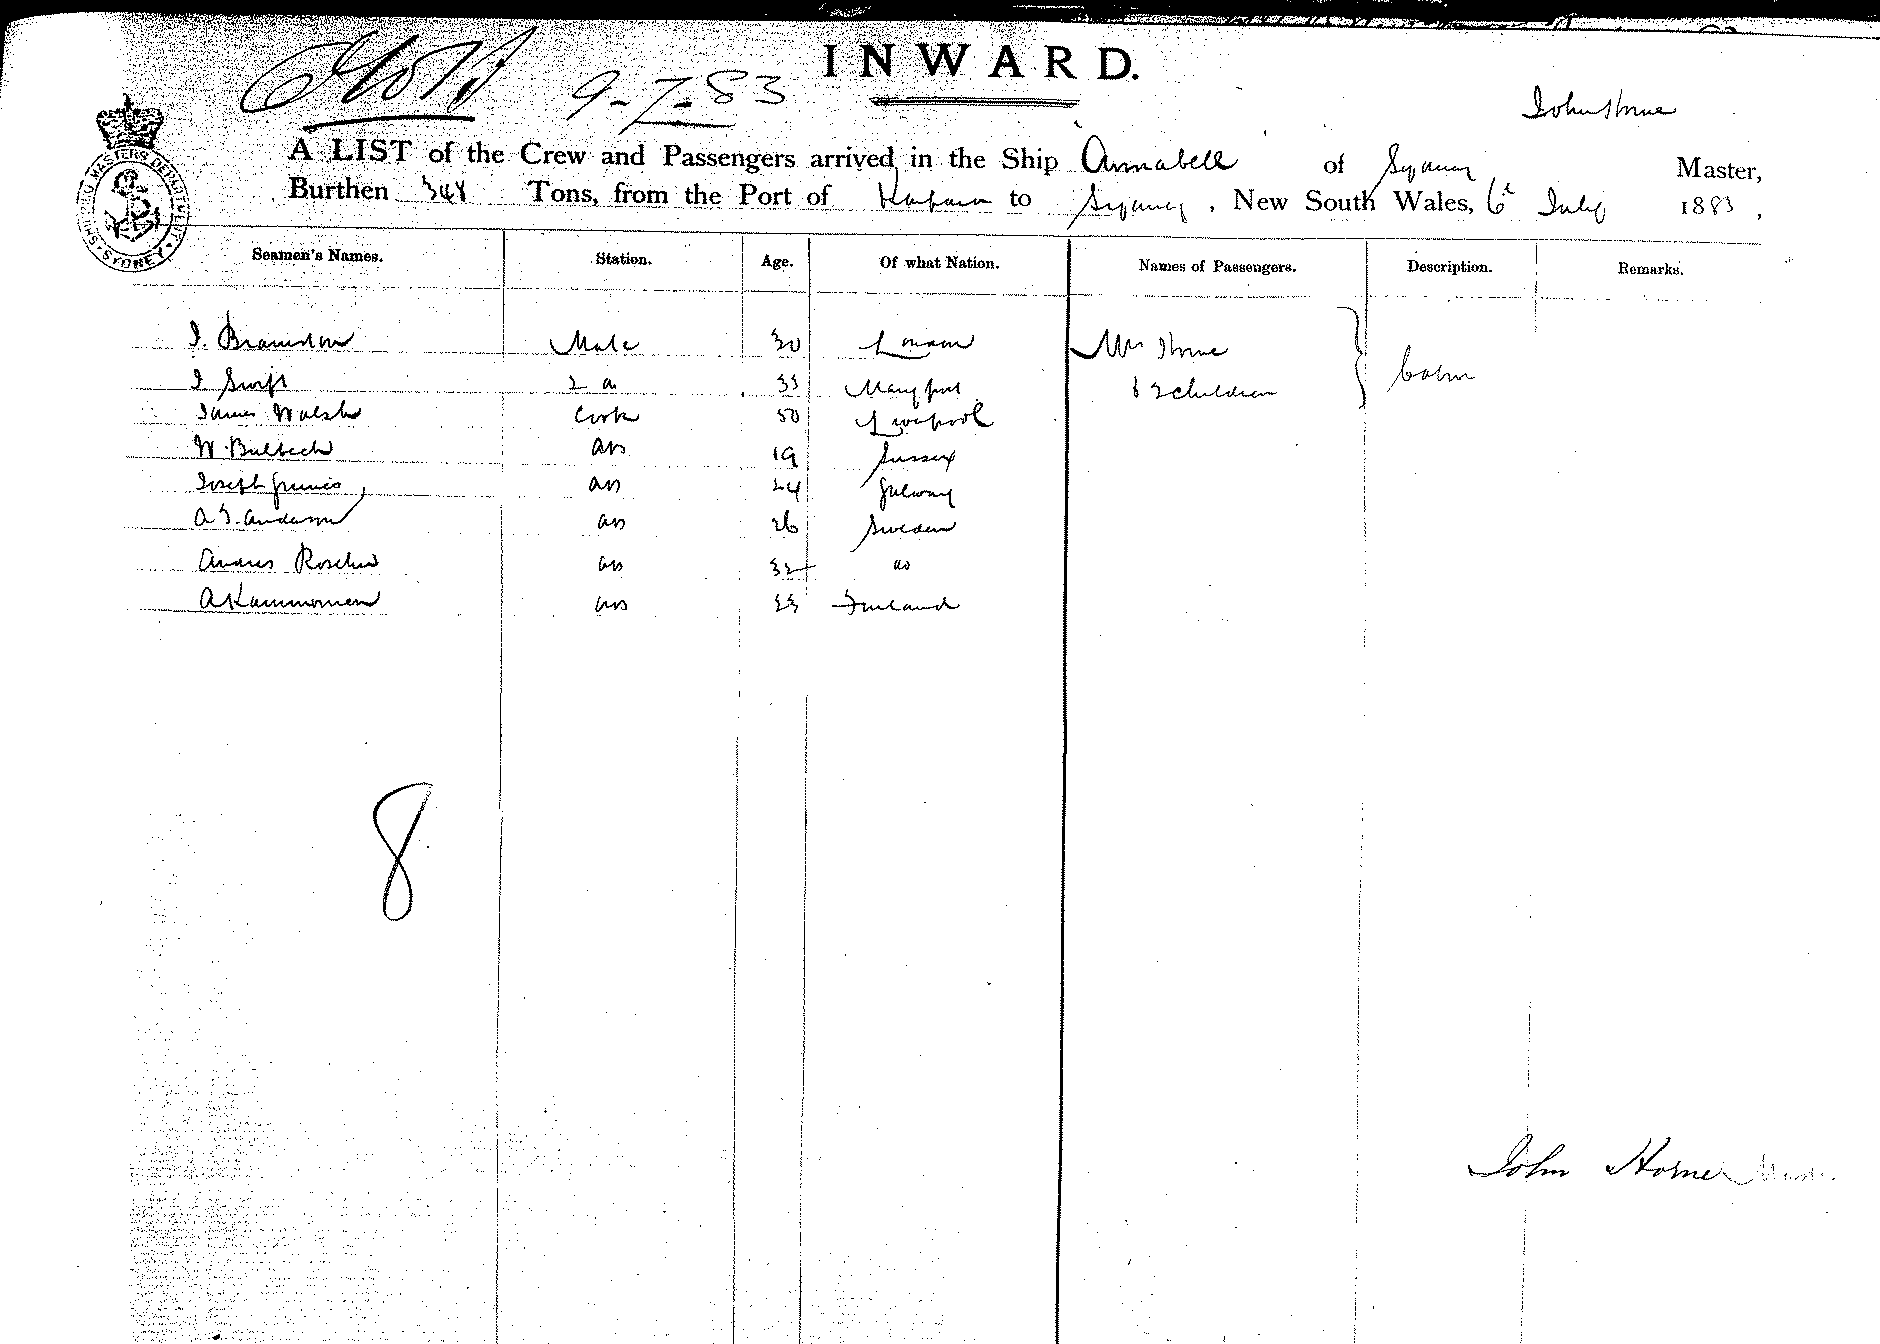 9-7-83
INWARD.
John Horne
A LIST of the Crew and Passengers arrived in the Ship Annabell of Sydney Master,
Burthen 348 Tons, from the Port of to Sydney, New South Wales, 6th July 1883,
SHIPPING MASTERS DEPARTMENT SYDNEY
Seamen's Names. Station. Age. Of what Nation. Names of Passengers. Description. Remarks.
Mate 30 London Mrs Horne
J Swift 2 do 33 Maryport & 2 children Cabin
James Walsh Cook 50 Liverpool
W. Bulbeck AB 19 Sussex
Joseph AB 24 Galway
A. Anderson AB 26 Sweden
AB 32 do
AB 23 Finland
8
John Horne